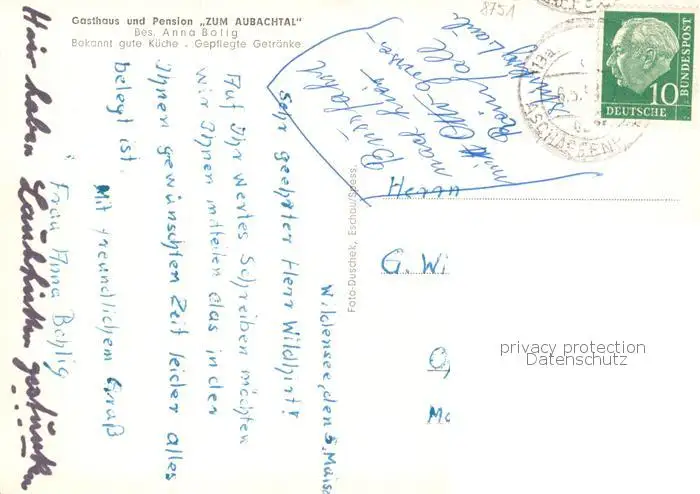 Gasthaus und Pension „ZUM AUBACHTAL"
Bes. Anna Bolig
Bekannt gute Küche - Gepflegte Getränke
8751
DEUTSCHE
BUNDESPOST
10
ASCHAFFEN
Foto-Duschek, Eschau/Spess.
Herrn
G. Wi
privacy protection
Datenschutz
Wildensee, den 5. Mai
Sehr geehrter Herr Wildhirt!
Auf Ihr wertes Schreiben möchten
wir Ihnen mitteilen das in der
Ihnen gewünschten Zeit leider alles
belegt ist.
Mit freundlichem Gruß
Frau Anna Bohlig
Hier haben
Busfahrt
nach hier
mit Otto
Reinfall